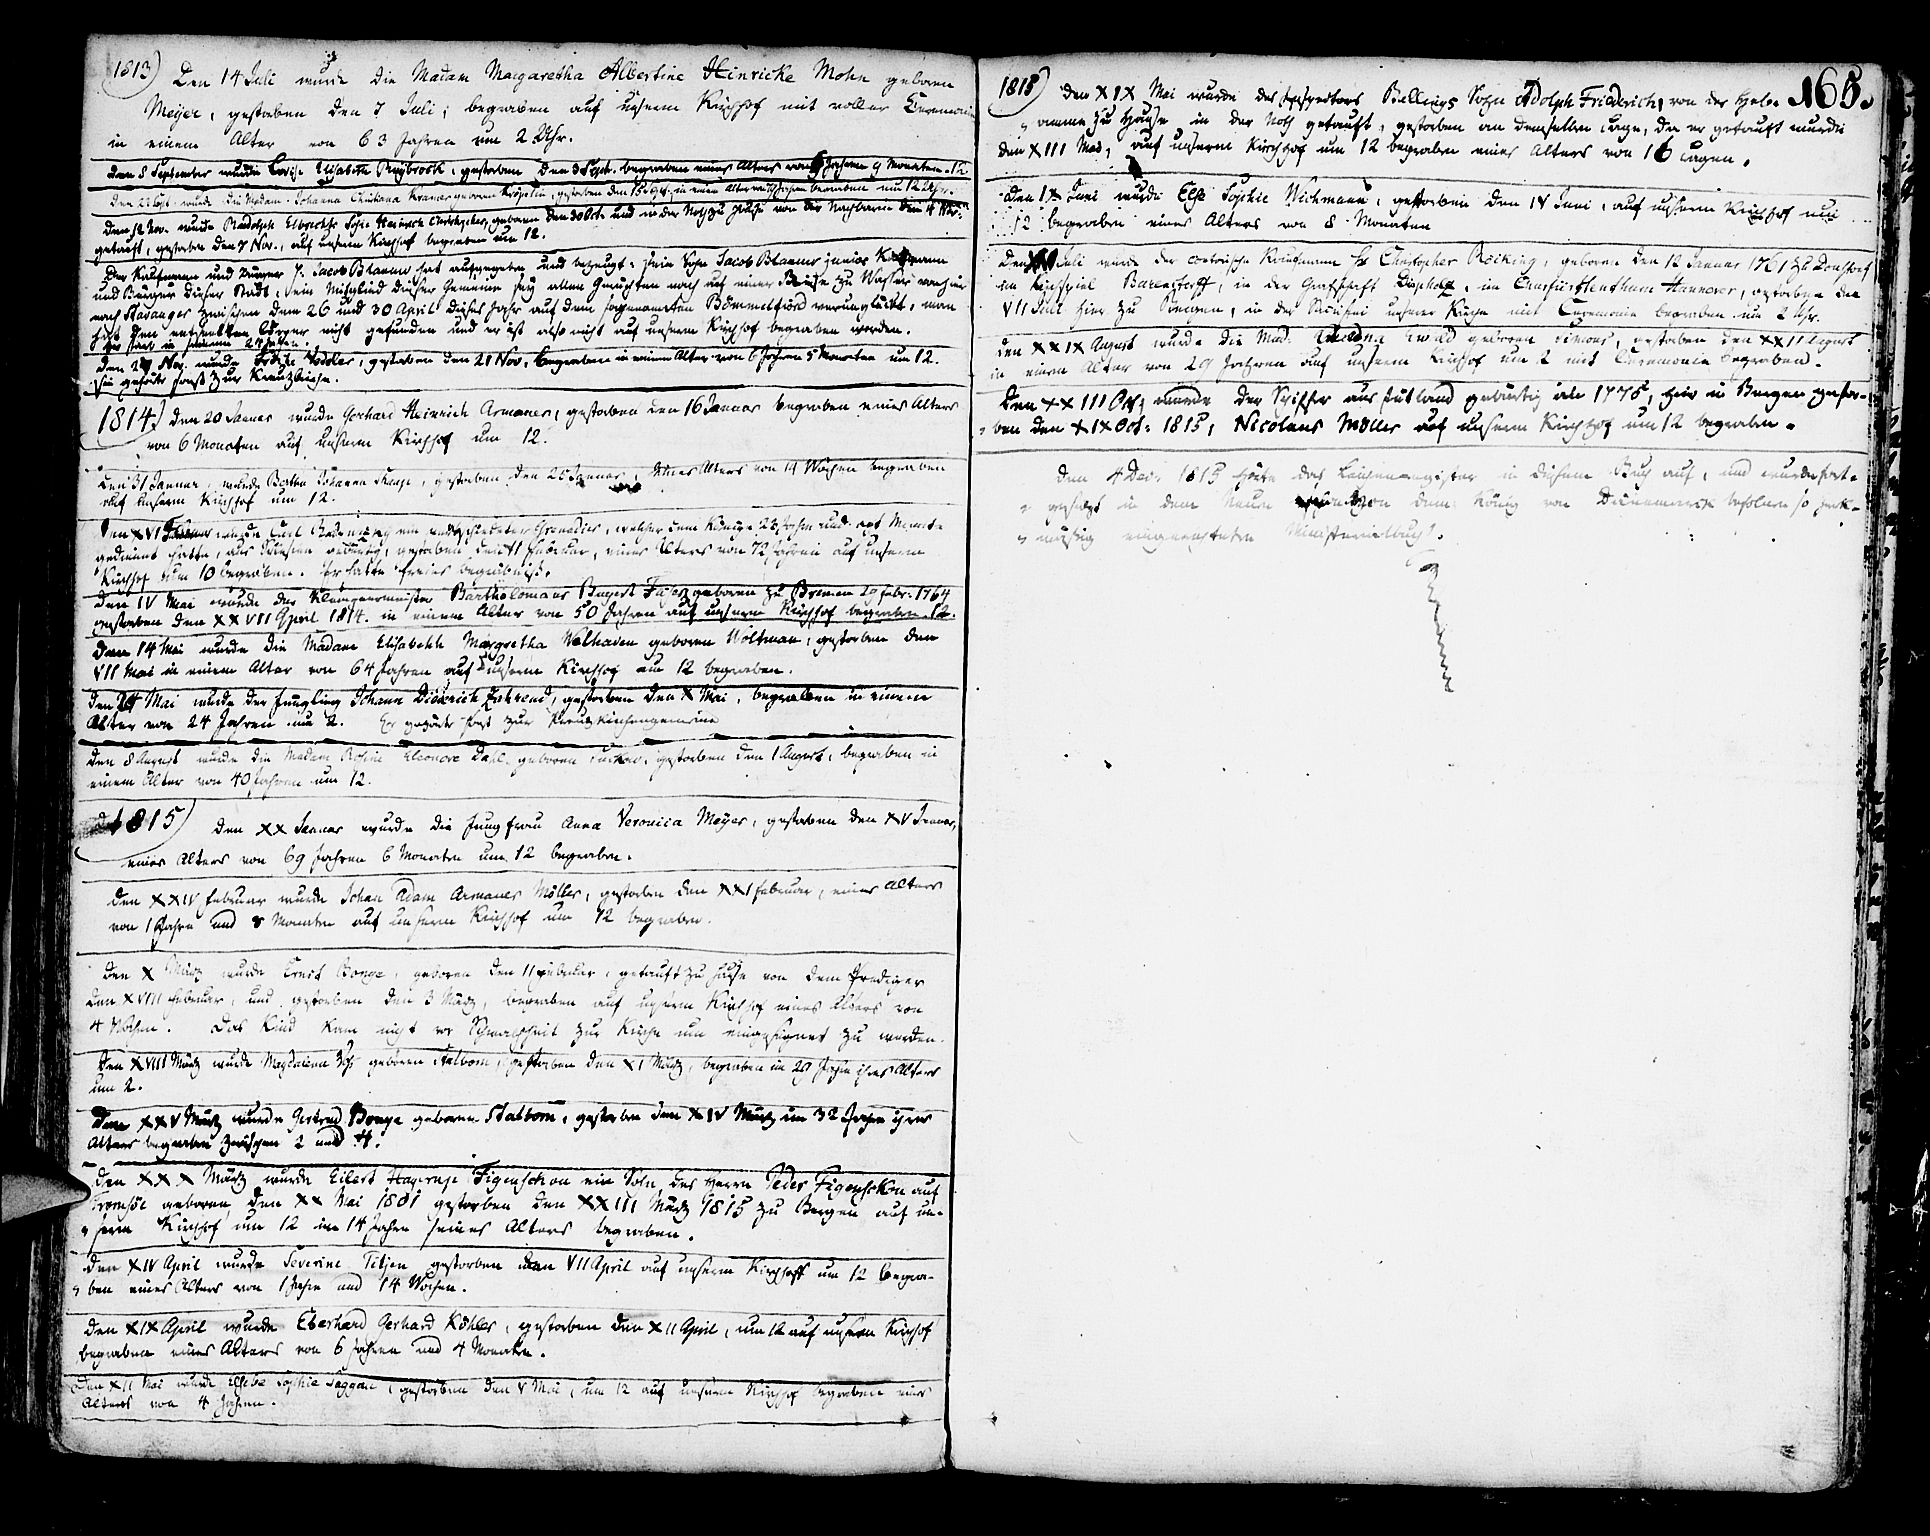 1813) Den 14 Juli wurde die Madam Margaretha Albertine Hinricke Mohn geboren
Meyer, gestorben den 7 Juli, begraben auf unserm Kirchhof mit voller Ceremonie
in einem Alter von 63 Jahren um 2 Uhr.
Den 8 September wurde Elisabeth, gestorben den 3 Sept. begraben eines Alters von Jahren 9 Monaten. 12
Den Sept. wurde die Madam Johanna Christiana geboren, gestorben den in einem Alter von Jahren begraben um 12 Uhr.
Den 12 Nov. wurde Rudolph Sohn Heinrich Christopher, geboren den 30 Oct. und in der Noth zu Hause von der Nachbarin den 4 Nov.
getauft, gestorben den 7 Nov., auf unserm Kirchhof begraben um 12.
Der Kaufmann und Bürger H. Jacob Blauw hat aufgegeben und bezeugt: sein Sohn Jacob Blauw junior Kaufmann
und Bürger dieser Stadt, ein Mitglied dieser Gemeine sey allen Gerüchten nach auf einer Reise zu Wasser von hier
nach Stavanger zwischen dem 26 und 30 April dieses Jahr auf dem sogenannten Bömmelfiord verunglückt, man
hat den entseelten Körper nicht gefunden und er ist also nicht auf unserm Kirchhof begraben worden.
Er starb in seinem 24 Jahre.
Den 27 Nov. wurde, gestorben den 21 Nov. begraben in einem Alter von 6 Jahren 5 Monaten um 12.
Sie gehörte sonst zur Kreutzkirche.
1814) Den 20 Januar wurde Gerhard Heinrich Armauer, gestorben den 16 Januar begraben eines Alters
von 6 Monaten auf unserm Kirchhof um 12.
Den 31 Januar wurde Bertha Johanna, gestorben den 25 Januar, eines Alters von 14 Wochen begraben
auf unserm Kirchhof um 12.
Den XVI Februar wurde Carl ein verabschiedeter Grenadier, welcher dem Könige 28 Jahre und acht Monate
gedient hatte, aus gebürtig, gestorben den 11 Februar, eines Alters von 72 Jahren auf unserm
Kirchhof um 10 begraben. Er hatte freies Begräbniß.
Den IV Mai wurde der Bartholomäus geboren zu Bremen 20 Febr. 1764
gestorben den XXVII April 1814. in einem Alter von 50 Jahren auf unserm Kirchhof begraben 12.
Den 14 Mai wurde die Madam Elisabeth Margretha Welhaven geboren Woltman, gestorben den
VII Mai in einem Alter von 64 Jahren auf unserm Kirchhof um 12 begraben.
Den Mai wurde der Jüngling Johann Diederich, gestorben den X Mai, begraben in einem
Alter von 24 Jahren um 2. Er gehörte sonst zur Kreutzkirchengemeine
Den 8 August wurde die Madam Eleonore Dahl, geboren, gestorben den 1 August, begraben in
einem Alter von 40 Jahren um 12.
1815) Den XX Januar wurde die Jungfrau Anna Veronica Meyer, gestorben den XV Januar,
eines Alters von 69 Jahren 6 Monaten um 12 begraben.
Den XXIV Februar wurde Johan Adam Armauer Möller, gestorben den XXI Februar, eines Alters
von 1 Jahre und 8 Monaten auf unserm Kirchhof um 12 begraben.
Den X März wurde Ernst Bonge, geboren den 11 Februar, getauft zu Hause von dem Prediger
den XVIII Februar, und gestorben den 3 März, begraben auf unserm Kirchhof eines Alters von
4 Wochen. Das Kind kam nicht vor Schwachheit zur Kirche um eingesegnet zu werden.
Den XVIII März wurde Magdalena geboren Stalbom, gestorben den XI März, begraben im 29 Jahre ihres Alters
um 2.
Den XXV März wurde Gertrud Bonge geboren Stalbom, gestorben den XIV März im 32 Jahre ihres
Alters begraben zwischen 2 und 4.
Den XXX März wurde Eilert Hagerup Figenschou ein Sohn des Herrn Peder Figenschou auf
Tromsöe geboren den XX Mai 1801 gestorben den XXIII März 1815 zu Bergen auf un-
serm Kirchhof um 12 im 14 Jahre seines Alters begraben.
Den XIV April wurde Severine Titjen gestorben den VII April auf unserm Kirchhoff um 12 begra-
ben eines Alters von 1 Jahre und 14 Wochen.
Den XIX April wurde Eberhard Gerhard Köhler, gestorben den XII April, um 12 auf unserm Kirchhof
begraben eines Alters von 6 Jahren und 4 Monaten.
Den XII Mai wurde Sophie, gestorben den V Mai, um 12 auf unserm Kirchhof begraben eines
Alters von 4 Jahren.
165.
1815) Den XIX Mai wurde des Inspectors Billings Sohn Adolph Friederich, von der Heb-
amme zu Hause in der Noth getauft, gestorben an demselben Tage, da er getauft wurde
den XIII Mai, auf unserm Kirchhof um 12 begraben eines Alters von 16 Tagen.
Den IX Juni wurde Else Sophie Wichmann, gestorben den IV Juni, auf unserm Kirchhof um
12 begraben eines Alters von 8 Monaten
Den Juli wurde der Kaufmann Hr Christopher Röcking, geboren den 12 Januar 1761 zu
im Kirchspiel Barenstorff, in der Grafschaft Diepholz, im Churfürstenthum Hannover, gestorben den
VII Juli hier zu Bergen, in der Sacristei unserer Kirche mit Ceremonie begraben um 2 Uhr.
Den XXIX August wurde die Mad. geboren Simons, gestorben den XXIII August
in einem Alter von 29 Jahren auf unserm Kirchhof um 2 mit Ceremonie begraben.
Den XXIII Oct. wurde der Schiffer aus Jütland gebürtig ale 1775, hier in Bergen gestor-
ben den XIX Oct. 1815, Nicolaus Möller auf unserm Kirchhof um 12 begraben.
Den 4 Dec. 1815 hörte das Leichenregister in diesem Buch auf, und wurde fort-
gesetzt in dem neuen von dem König von Dännemark befohlen so zweck-
mäßig eingerichteten Ministerialbuch.